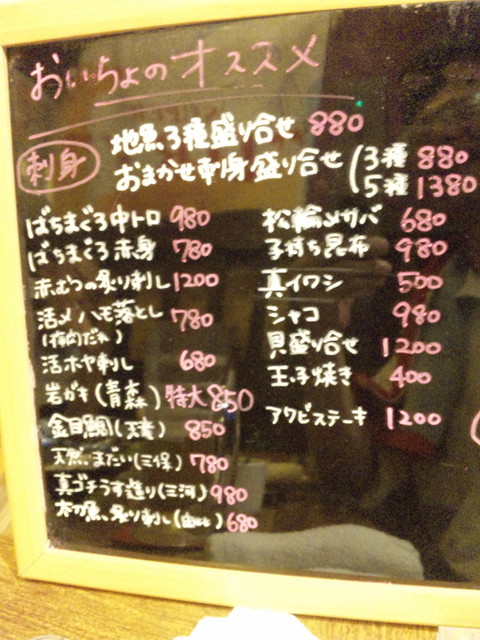 おいちょのオススメ
刺身
地魚3種盛り合せ 880
おまかせ刺身盛り合せ (3種 880
5種 1380
ばちまぐろ中トロ 980
ばちまぐろ赤身 780
赤むつの炙り刺し 1200
活〆ハモ落とし 780
(梅肉だれ)
活ホヤ刺し 680
岩がき(青森) 特大 850
金目鯛 850
天然まだい(三保) 780
真ゴチうす造り(三河) 980
炙り刺し(由比) 680
松輪〆サバ 680
子持ち昆布 980
真イワシ 500
シャコ 980
貝盛り合せ 1200
玉子焼き 400
アワビステーキ 1200